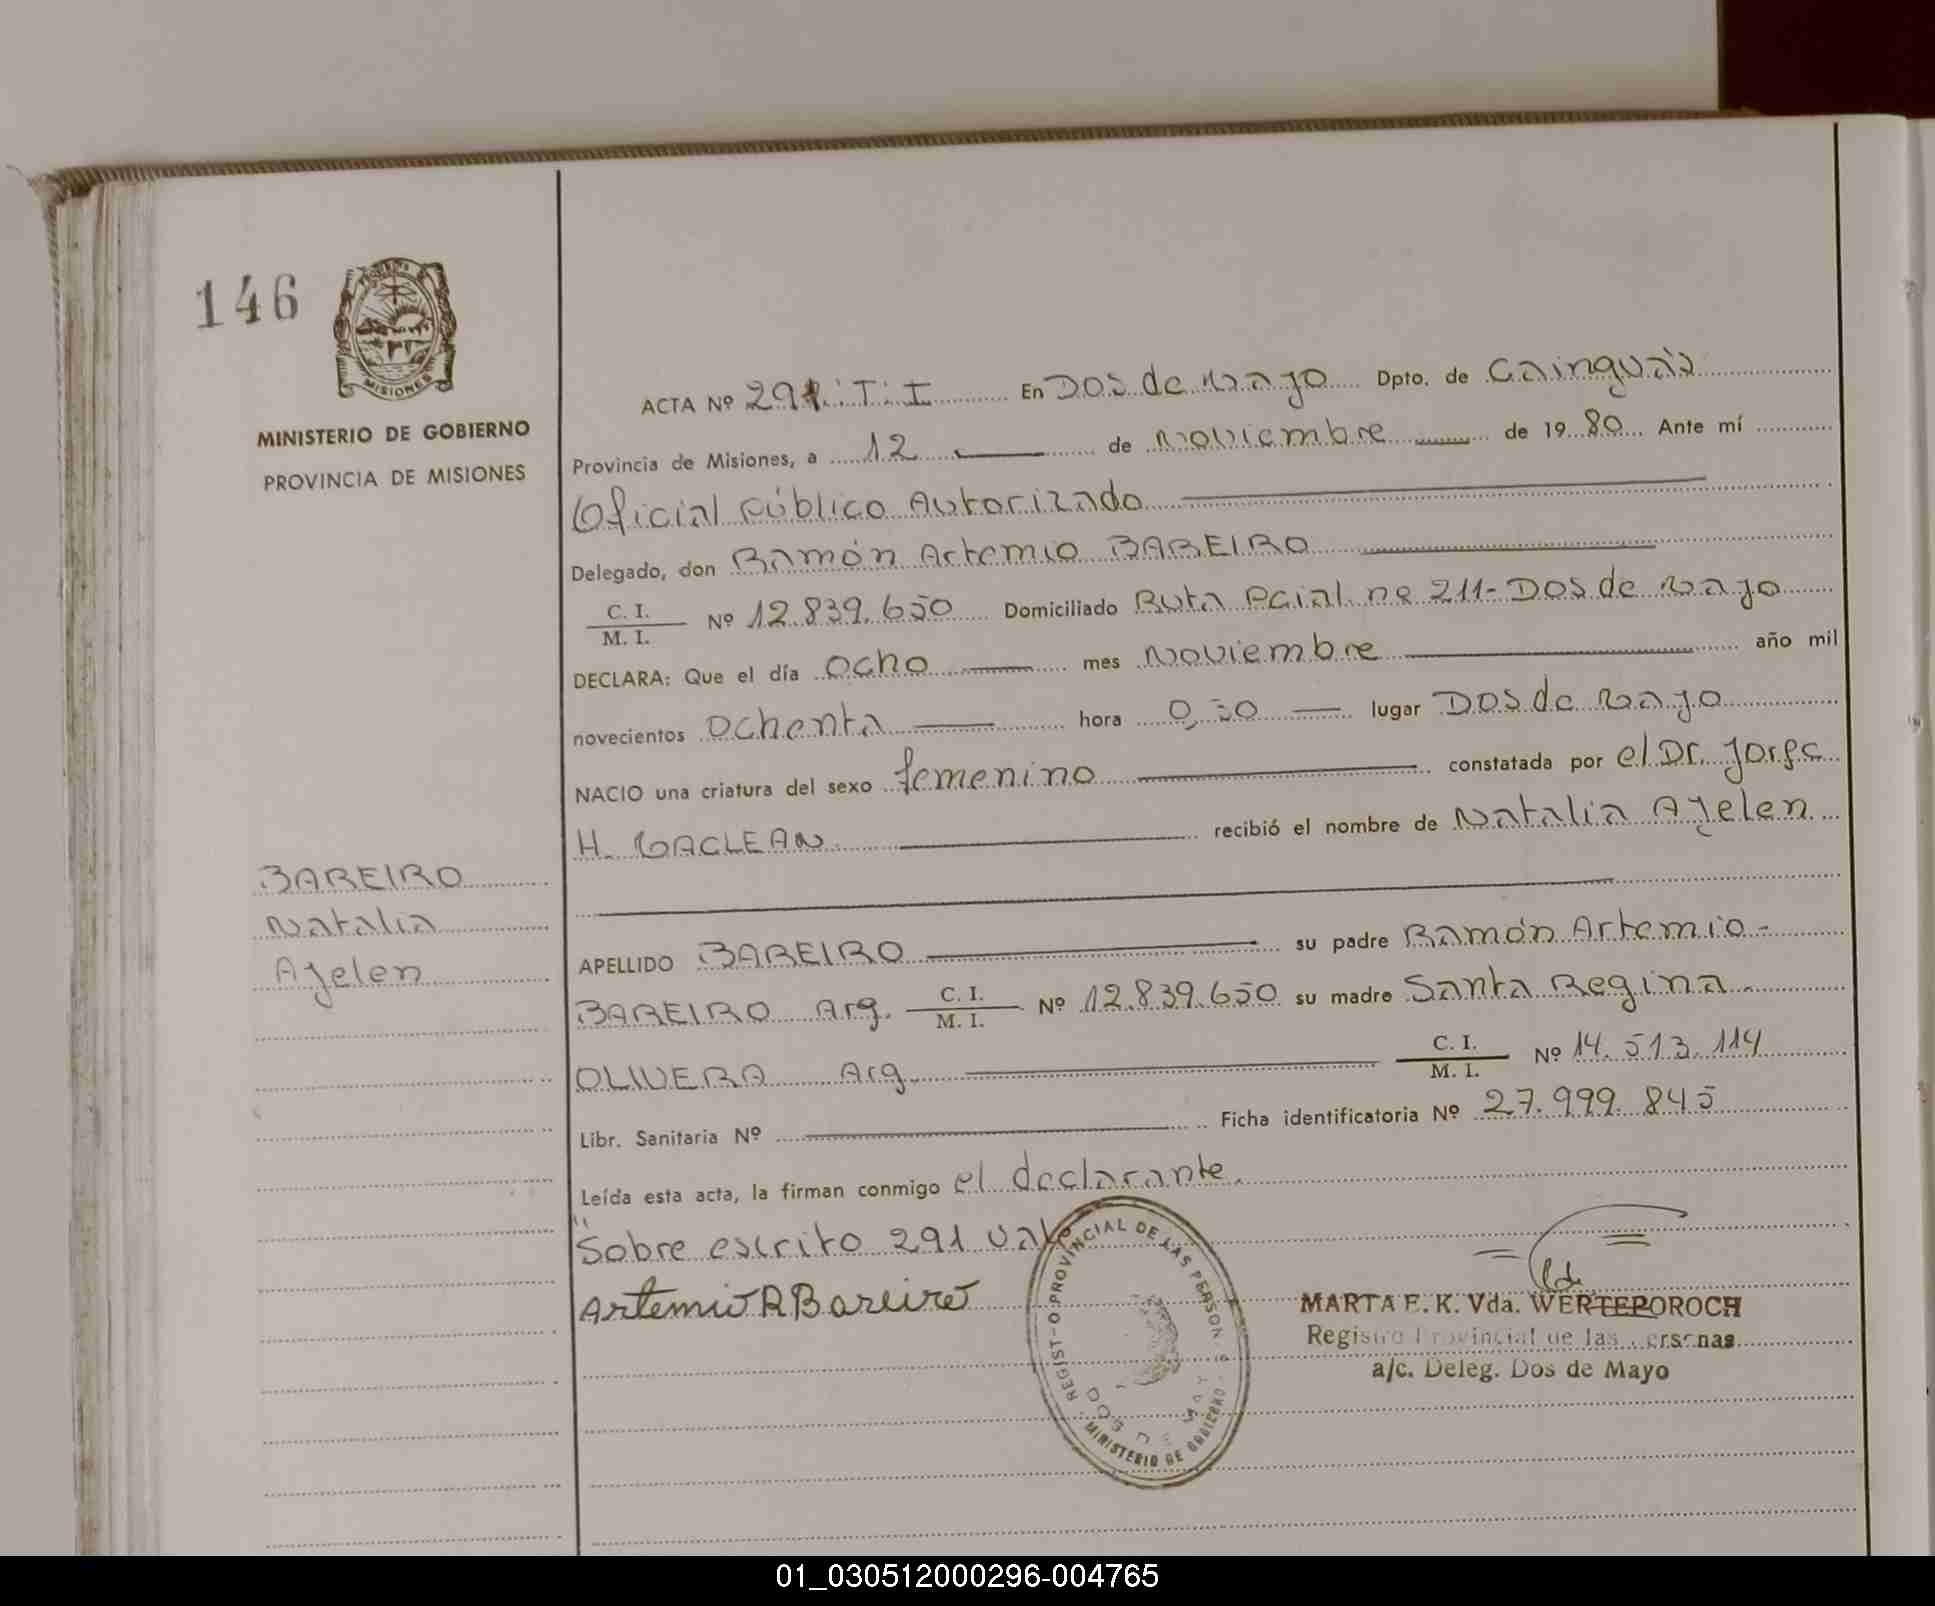 146
MISIONES
MINISTERIO DE GOBIERNO
PROVINCIA DE MISIONES
BAREIRO
Natalia
Ayelen
ACTA Nº 291. T: I En Dos de Mayo Dpto. de Cainguás
Provincia de Misiones, a 12 de Noviembre de 1980 Ante mí
Oficial Público Autorizado
Delegado, don Ramón Artemio BAREIRO
C. I. / M. I. Nº 12.839.650 Domiciliado Ruta Pcial nº 211-Dos de Mayo
DECLARA: Que el día ocho mes Noviembre año mil
novecientos ochenta hora lugar Dos de Mayo
NACIO una criatura del sexo femenino constatada por el Dr. Jorge
H. MACLEAN recibió el nombre de Natalia Ayelen
APELLIDO BAREIRO su padre Ramón Artemio-
BAREIRO Arg. C. I. / M. I. Nº 12.839.650 su madre Santa Regina
OLIVERA Arg. C. I. / M. I. Nº 14.513.114
Libr. Sanitaria Nº Ficha identificatoria Nº 27.999.845
Leída esta acta, la firman conmigo el declarante.
Sobre escrito 291 vale
Artemio R Bareiro
REGIST-O PROVINCIAL DE LAS PERSON
MINISTERIO DE GOBIERNO
MARTA E. K. Vda. WERTEPOROCH
Registro Provincial de las Personas
a/c. Deleg. Dos de Mayo
01_030512000296-004765